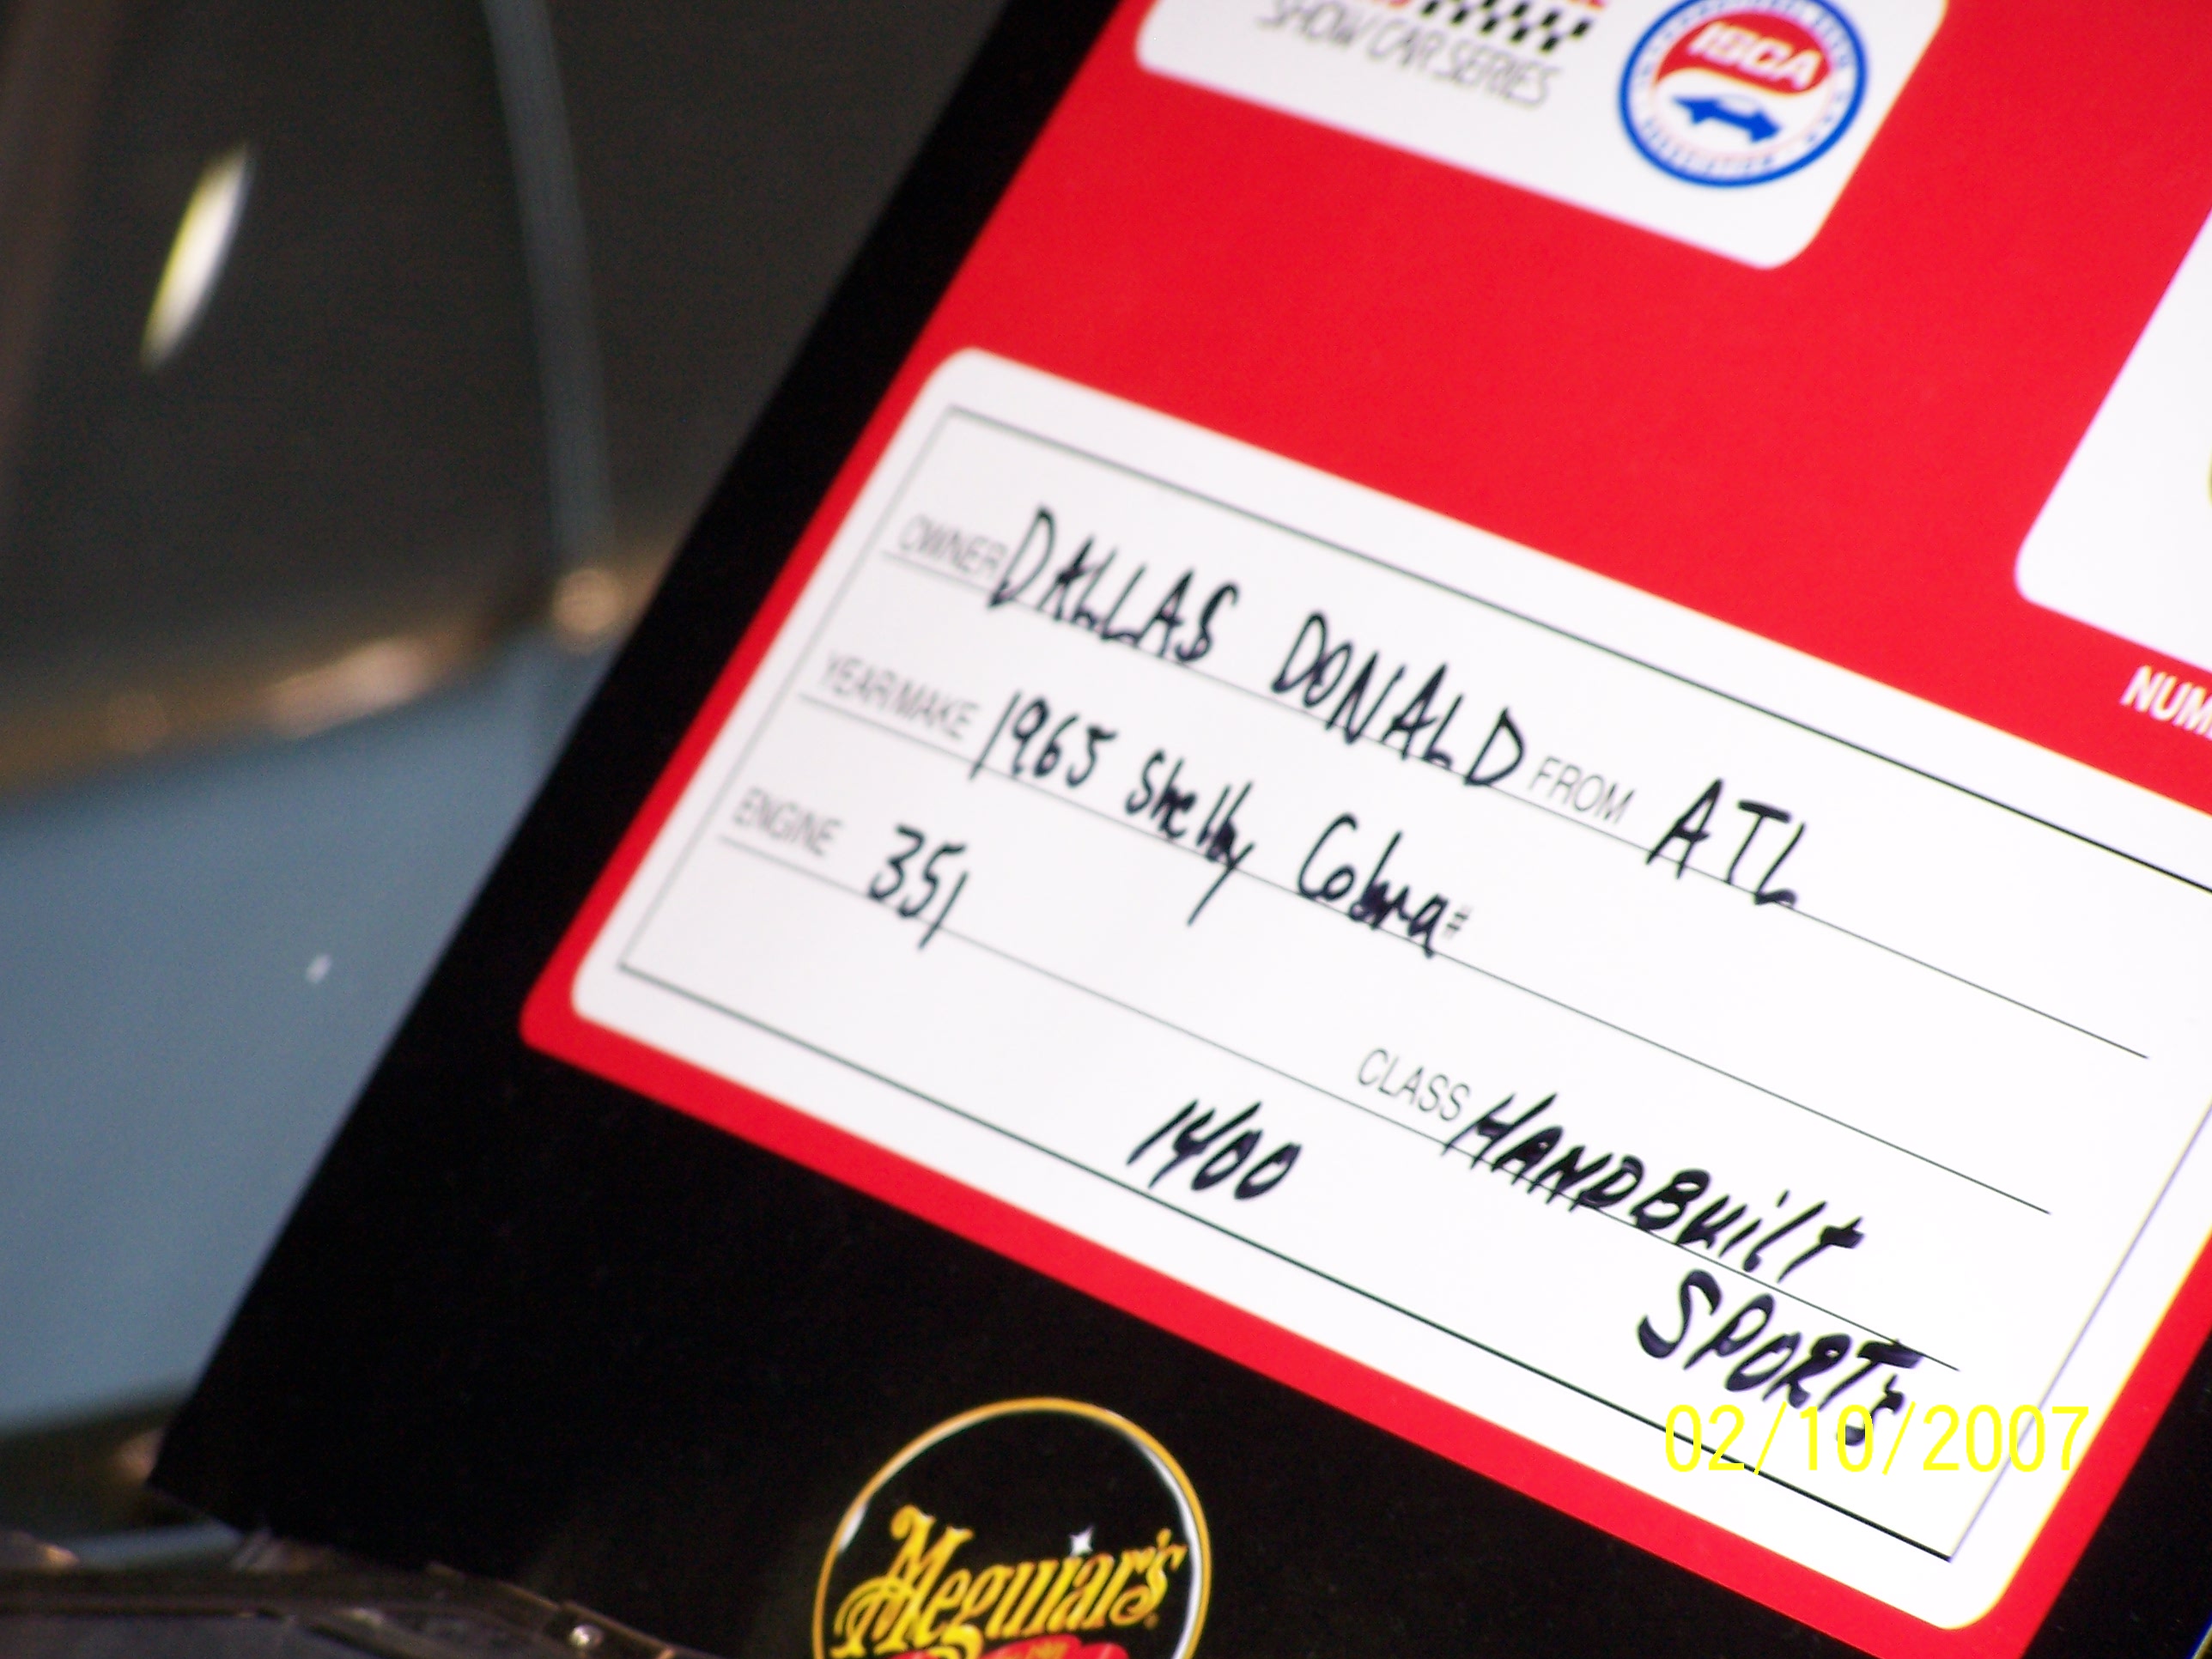 SHOW CAR SERIES
ISCA
NUM
OWNER DALLAS DONALD FROM ATL
YEAR/MAKE 1965 Shelby Cobra
ENGINE 351
CLASS HANDBuilt
1400
SPORTS
02/10/2007
Meguiar's